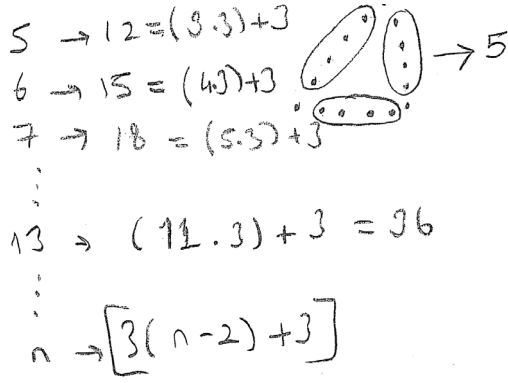 5 → 12 = (3.3)+3
6 → 15 = (4.3)+3
7 → 18 = (5.3)+3
⋮
13 → (11.3)+3 = 36
⋮
n → [3(n-2)+3]
→ 5